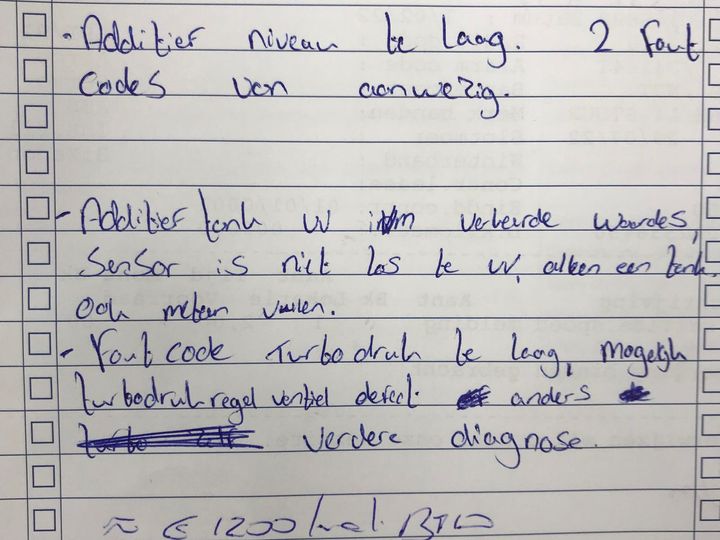 - Additief niveau te laag. 2 Fout
Codes van aanwezig.
- Additief tank vv ivm verkeerde waardes,
Sensor is niet los te vv, alleen een tank.
Ook meteen vullen.
- Foutcode turbodruk te laag, mogelijk
turbodrukregel ventiel defect. anders
verdere diagnose.
≈ € 1200 incl. BTW